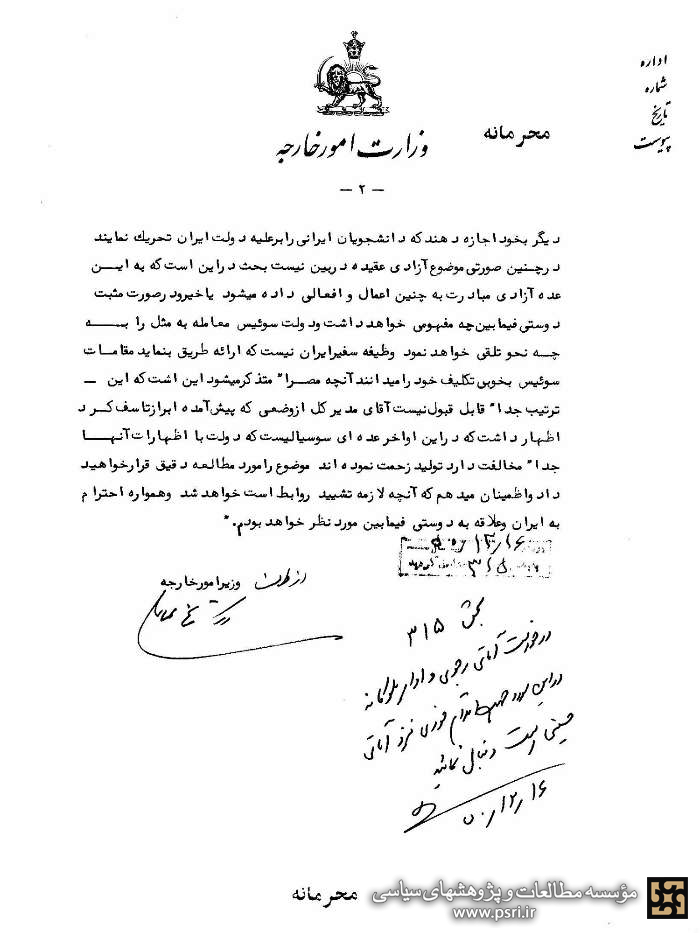 اداره
شماره
تاریخ
پیوست
محرمانه
وزارت امور خارجه
— ۲ —
دیگر بخود اجازه دهند که دانشجویان ایرانی را بر علیه دولت ایران تحریك نمایند
در چنین صورتی موضوع آزادی عقیده در بین نیست بحث در این است که به ایـــن
عده آزادی مبادرت به چنین اعمال و افعالی داده میشود یا خیر و در صورت مثبت
دوستی فیمابین چه مفهومی خواهد داشت و دولت سوئیس معامله به مثل را بـــه
چــه نحو تلقی خواهد نمود وظیفه سفیر ایران نیست که ارائه طریق بنماید مقامات
سوئیس بخوبی تکلیف خود را میدانند آنچه مصرا" متذکر میشود این است که این ــ
ترتیب جدا" قابل قبول نیست آقای مدیر کل از وضعی که پیش آمده ابراز تاسف کرد
اظهار داشت که در این اواخر عده ای سوسیالیست که دولت با اظهارات آنهــا
جدا" مخالفت دارد تولید زحمت نموده اند موضوع را مورد مطالعه دقیق قرار خواهید
داد و اطمینان میدهم که آنچه لازمه تشیید روابط است خواهد شد و همواره احترام
به ایران و علاقه به دوستی فیمابین مورد نظر خواهد بود م."
۵۰/۱۲/۱۶
۳۱۵
از طرف وزیر امور خارجه
بخش ۳۱۵
در این مورد
فوری نزد
است دنبال نمائید
۵۰/۱۲/۱۶
محرمانه
مؤسسه مطالعات و پژوهشهای سیاسی
www.psri.ir